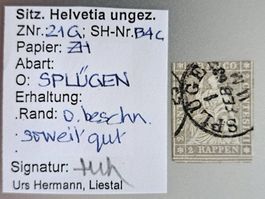 Sitz. Helvetia ungez.
ZNr. 21G; SH-Nr. B4C
Papier: ZH
Abart:
O: SPLÜGEN
Erhaltung:
.Rand: o. beschn.
soweit gut
Signatur:
Urs Hermann, Liestal
SPLÜGEN
1 FEBR
2 RAPPEN